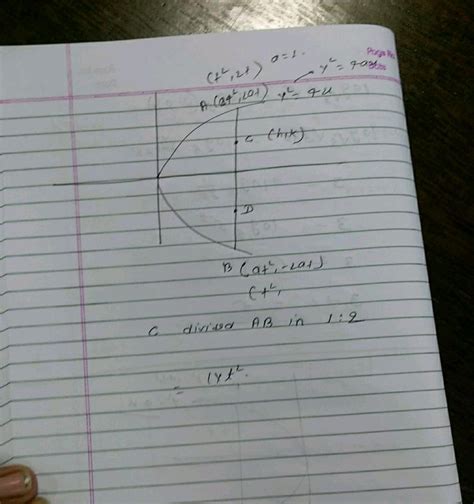 Page No.
Date
(t², 2t) a=1.
y² = 4ax
A (at², 2at) y² = 4x
C (h,k)
D
B (at², -2at)
(t²,
C divided AB in 1:2
=